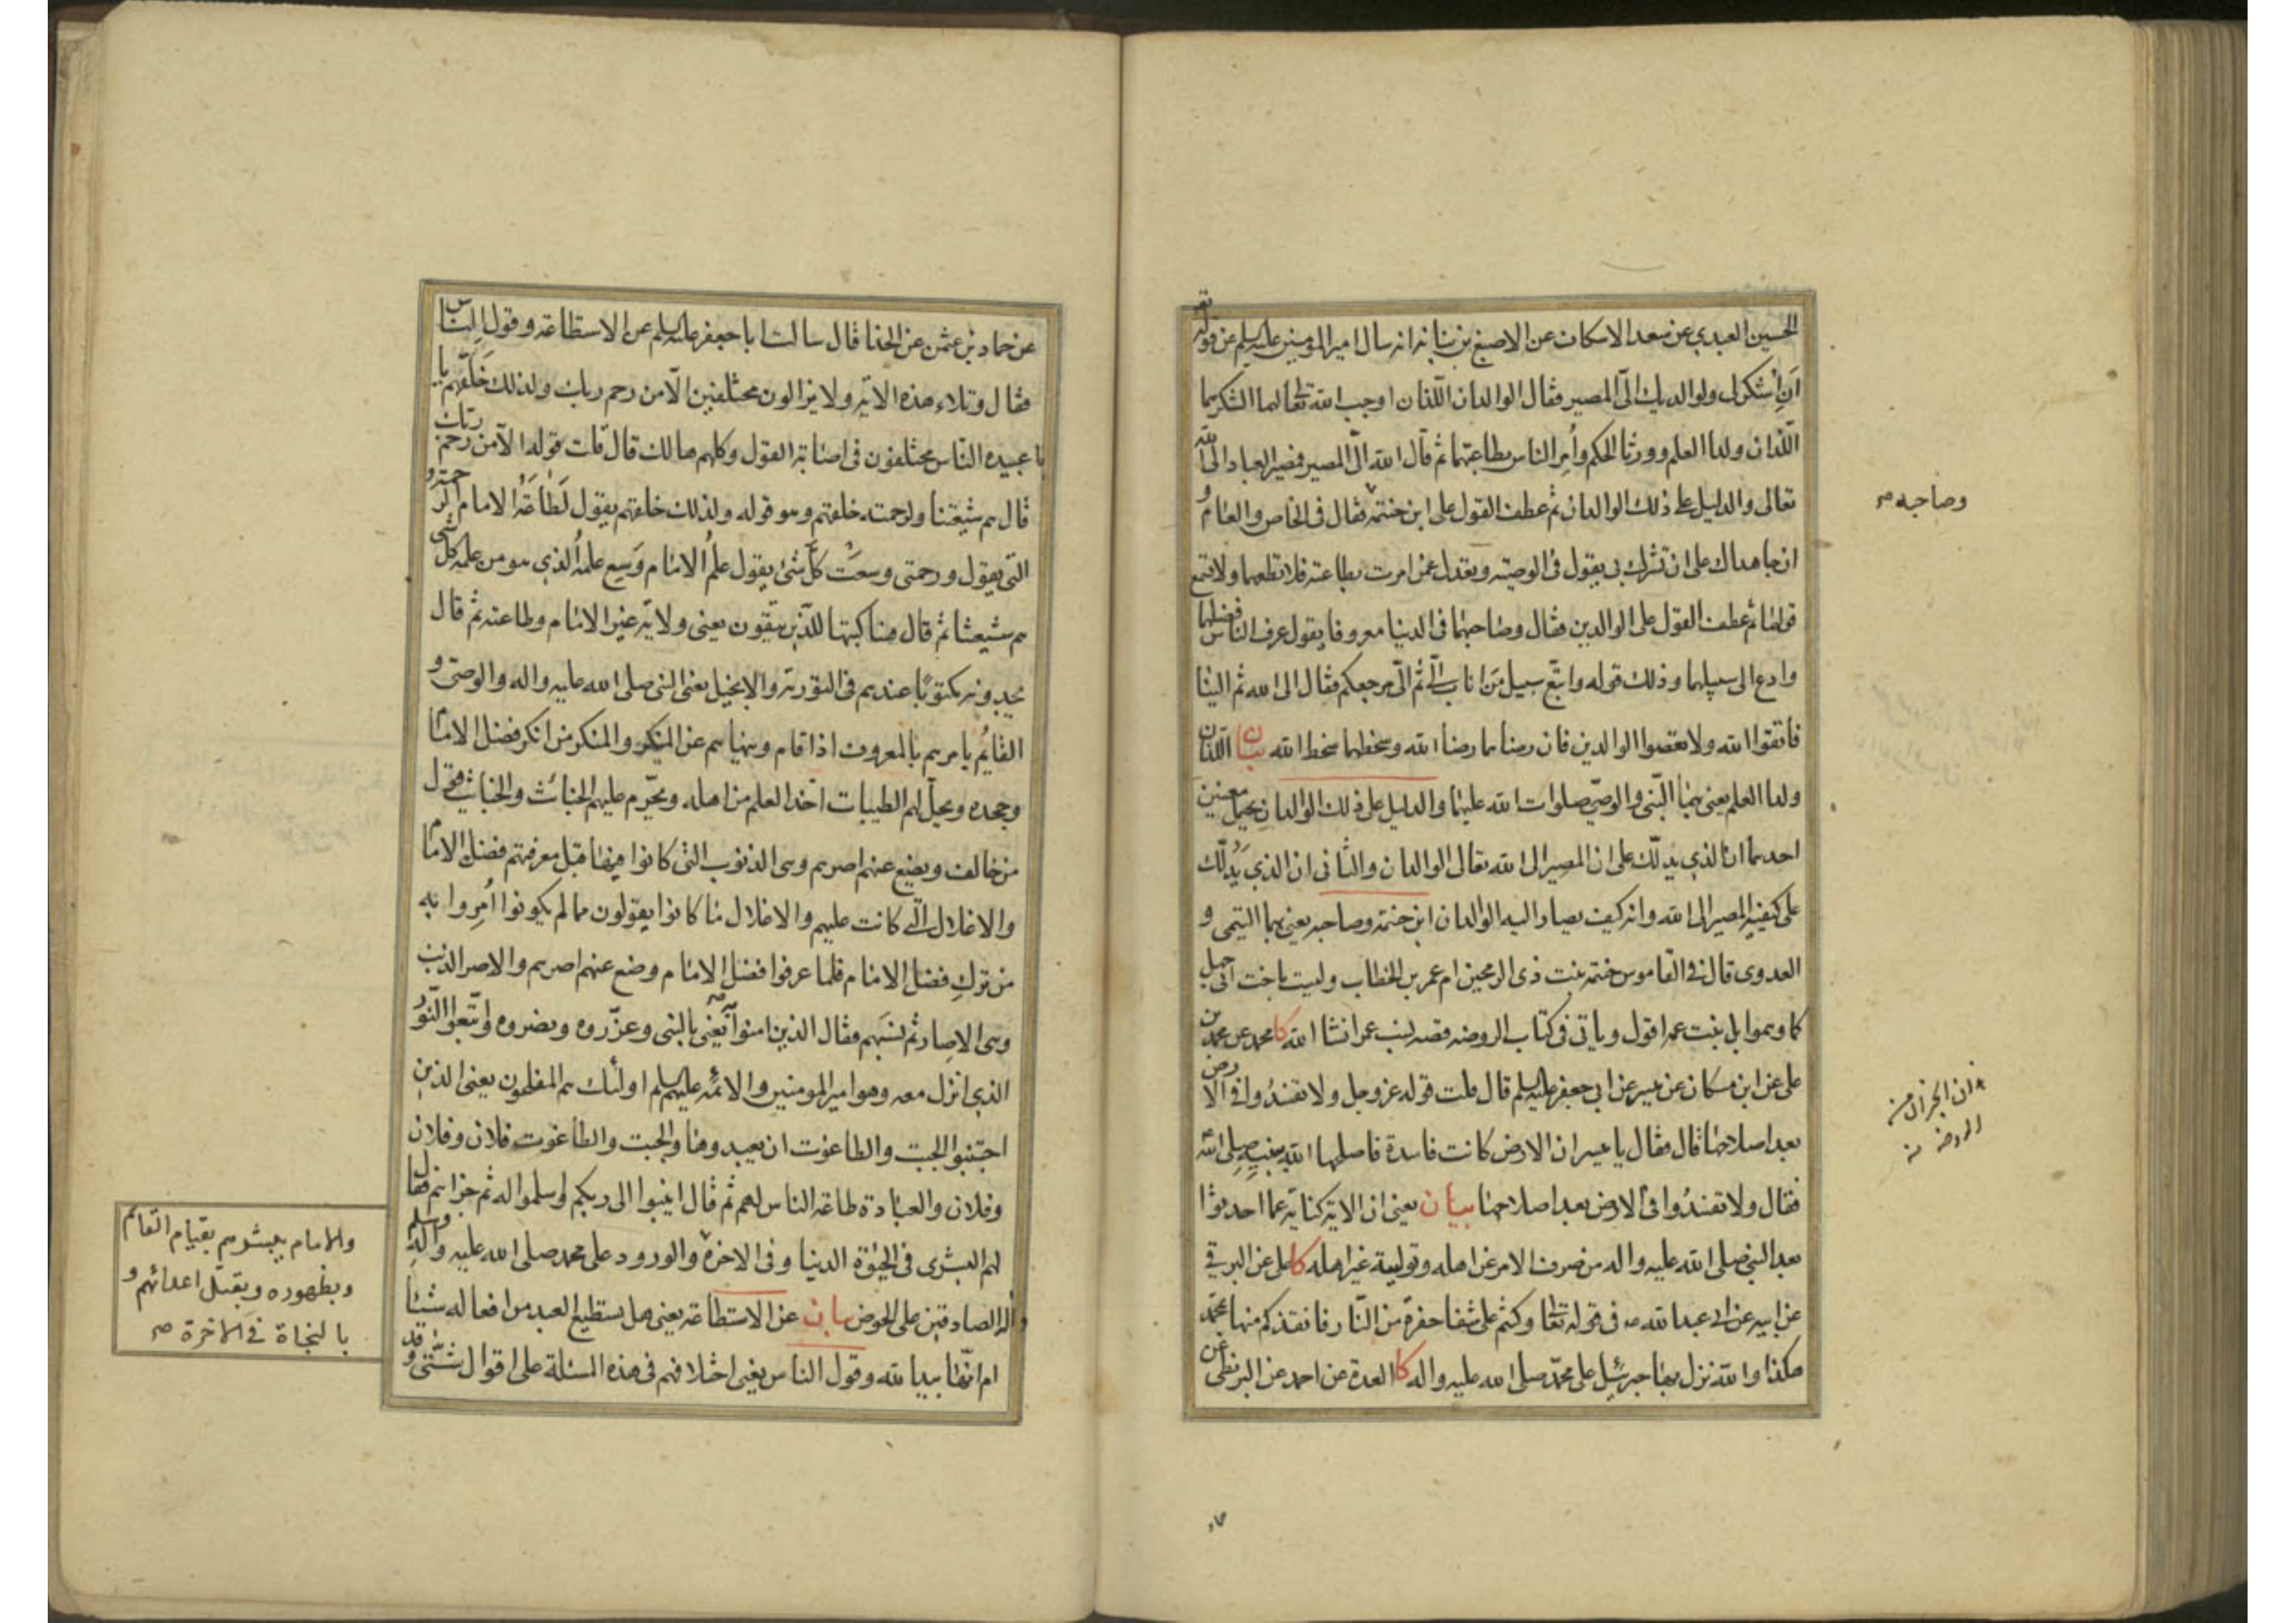 الحسين العبدي عن سعد الاسكاف عن الاصبغ بن نباتة انه سال امير المومنين عليه السلم عن قوله تع
اَنِ اشكر لى ولوالديك الىّ المصير فقال الوالدان اللّذان اوجب الله تعالى لهما الشكر هما
اللّذان ولدا العلم وورثا الحكم واُمِرَ الناس بطاعتهما ثم قال الله الىّ المصير فمصير العباد الى الله
تعالى والدليل على ذلك الوالدان ثم عطف القول على ابن حنتمة فقال فى الخاص والعام و
ان جاهداك على ان تشرك بى يقول فى الوصية وتعدل عمن امرت بطاعته فلا تطعهما ولا تسمع
قولهما ثم عطف القول على الوالدين فقال وصاحبهما فى الدنيا معروفا يقول عرف الناس فضلهما
وادع الى سبيلهما وذلك قوله واتبع سبيل من اناب الىّ ثم الىّ مرجعكم فقال الى الله ثم الينا
فاتقوا الله ولا تعصوا الوالدين فان رضاهما رضا الله وسخطهما سخط الله بيان اللّذان
ولدا العلم يعنى بهما النّبى والوصىّ صلوات الله عليهما والدليل على ذلك الوالدان يحتمل معنيين
احدهما ان الذى يدلّك على ان المصير الى الله تعالى الوالدان والثانى ان الذى يَدُلّك
على كيفية المصير الى الله وانه كيف يصار اليه الوالدان ابن حنتمة وصاحبه يعنى بهما التيمى و
العدوى قال فى القاموس حنتمة بنت ذى الرمحين ام عمر بن الخطاب وليست باخت ابى جهل
كما وهموا بل بنت عمه اقول وياتى فى كتاب الروضه قصه نسب عمر انشا الله كا محمد عن محمد بن
على عن ابن مسكان عن ميسر عن ابى جعفر عليه السلم قال قلت قوله عز وجل ولا تفسدُوا فى الارض
بعد اصلاحها قال فقال يا ميسر ان الارض كانت فاسدة فاصلحها الله بنبيه صلى الله
فقال ولا تفسدُوا فى الارض بعد اصلاحها بيان يعنى ان الاية كناية عما احدثوا
بعد النبى صلى الله عليه واله من صرف الامر عن اهله وتولية غير اهله كا على عن البرقى
عن ابيه عن ابى عبد الله ع فى قوله تعالى وكنتم على شفا حفرة من النّار فانقذكم منها بمحمّد
هكذا والله نزل بها جبرئيل على محمّد صلى الله عليه واله كا العدة عن احمد عن البزنطى عن
وصاحبه صح
عن حماد بن عثمن عن الحذا قال سالت ابا جعفر عليه السلم عن الاستطاعة وقول الناس
فقال وتلاء هذه الاية ولا يزالون مختلفين الّا من رحم ربك ولذلك خَلَقَهم يا
با عبيده النّاس مختلفون فى اصابة القول وكلهم هالك قال قلت قوله الّا من رحم ربّك
قال هم شيعتنا ولرحمته خلقهم وهو قوله ولذلك خلقهم يقول لَطاعَة الامام الرحمة و
التى يقول ورحمتى وسعَت كلّ شئ يقول علمُ الامام وَسِع علمُه الذى هو من علمه كل شى
هم شيعتنا ثم قال فساكبتها للّذين يتّقون يعنى ولاية غير الامام وطاعته ثم قال
يجدونه مكتوبًا عندهم فى التورية والانجيل يعنى النبى صلى الله عليه واله والوصىّ و
القائم يامرهم بالمعروف اذا قام وينهاهم عن المنكر والمنكر من انكر فضل الامام
وجحده ويحلّ لهم الطيبات اخذ العلم من اهله ويحرّم عليهم الخبائث والخبائث قول
من خالف ويضع عنهم اصرهم وهى الذنوب التى كانوا فيها قبل معرفتهم فضل الامام
والاغلال الّتى كانت عليهم والاغلال ما كانوا يقولون مما لم يكونوا اُمِروا به
من تركِ فضل الامام فلما عرفوا فضل الامام وضع عنهم اصرهم والاصر الذنب
وهى الاصار ثم نسبَهم فقال الذين امنوا به يعنى بالنبى وعزّروه ونصروه واتّبعوا النّور
الذى انزل معه وهو امير المومنين والائمة عليهم السلم اولئك هم المفلحون يعنى الذين
اجتنبوا الجبت والطاغوت ان يعبدوها والجبت والطاغوت فلان وفلان
وفلان والعبادة طاعة الناس لهم ثم قال انيبوا الى ربكم واسلموا له ثم جزاهم فقال
لهم البشرى فى الحيوة الدنيا وفى الاخرة والورود على محمد صلى الله عليه واله وسلم
واله الصادقين على الحوض بيان عن الاستطاعة يعنى هل يستطيع العبد من افعاله شيئا
ام انّها بيد الله وقول الناس يعنى اختلافهم فى هذه المسئلة على اقوال شتّى وقد
والامام يبشرهم بقيام القائم
وبظهوره وبقتل اعدائهم و
بالنجاة فى الاخرة صح